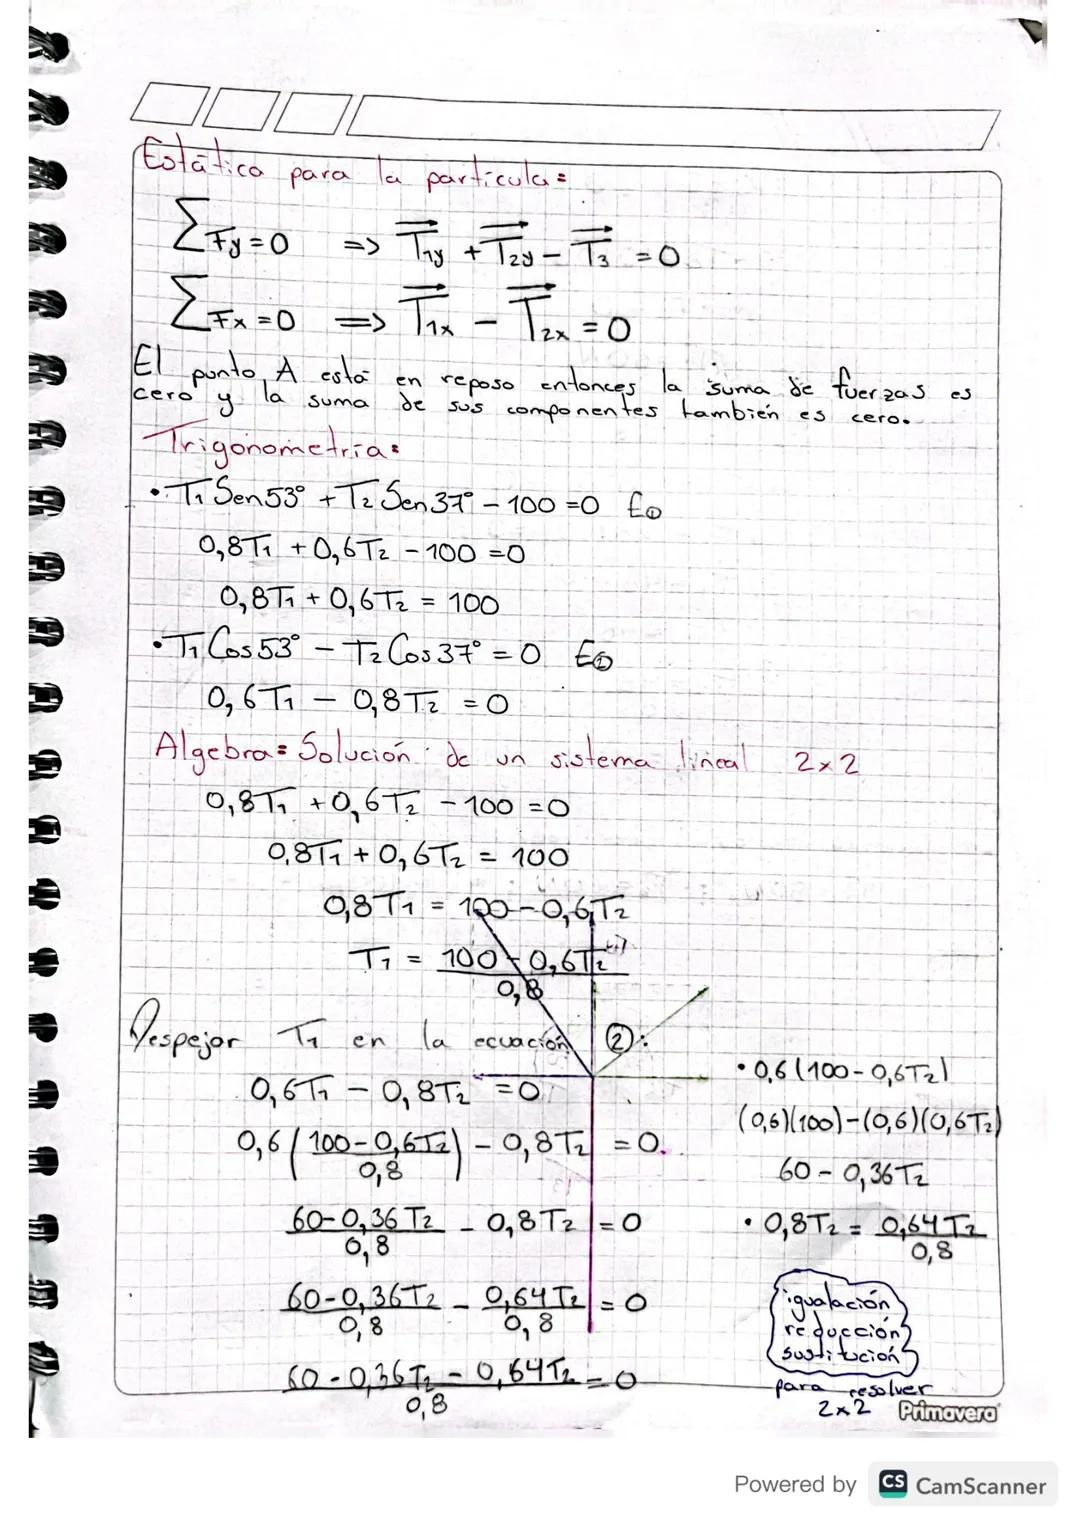 Estática para la partícula:
∑Fy = 0 => T1y + T2y - T3 = 0
∑Fx = 0 => T1x - T2x = 0
El punto A está en reposo entonces la suma de fuerzas es
cero y la suma de sus componentes también es cero.
Trigonometría:
• T1 Sen53° + T2 Sen37° - 100 = 0
0,8T1 + 0,6T2 - 100 = 0
0,8T1 + 0,6T2 = 100
• T1 Cos53° - T2 Cos37° = 0
0,6T1 - 0,8T2 = 0
Algebra: Solución de un sistema lineal 2x2
0,8T1 + 0,6T2 - 100 = 0
0,8T1 + 0,6T2 = 100
0,8T1 = 100 - 0,6T2
T1 = 100 - 0,6T2
0,8
Despejar T1 en la ecuación ②:
0,6T1 - 0,8T2 = 0
0,6 (100 - 0,6T2 / 0,8) - 0,8T2 = 0.
60 - 0,36T2 / 0,8 - 0,8T2 = 0
60 - 0,36T2 / 0,8 - 0,64T2 / 0,8 = 0
60 - 0,36T2 - 0,64T2 = 0
0,8
• 0,6(100 - 0,6T2)
(0,6)(100) - (0,6)(0,6T2)
60 - 0,36T2
• 0,8T2 = 0,64T2
0,8
igualación
reducción
sustitución
para resolver
2x2
Primavera
Powered by CS CamScanner